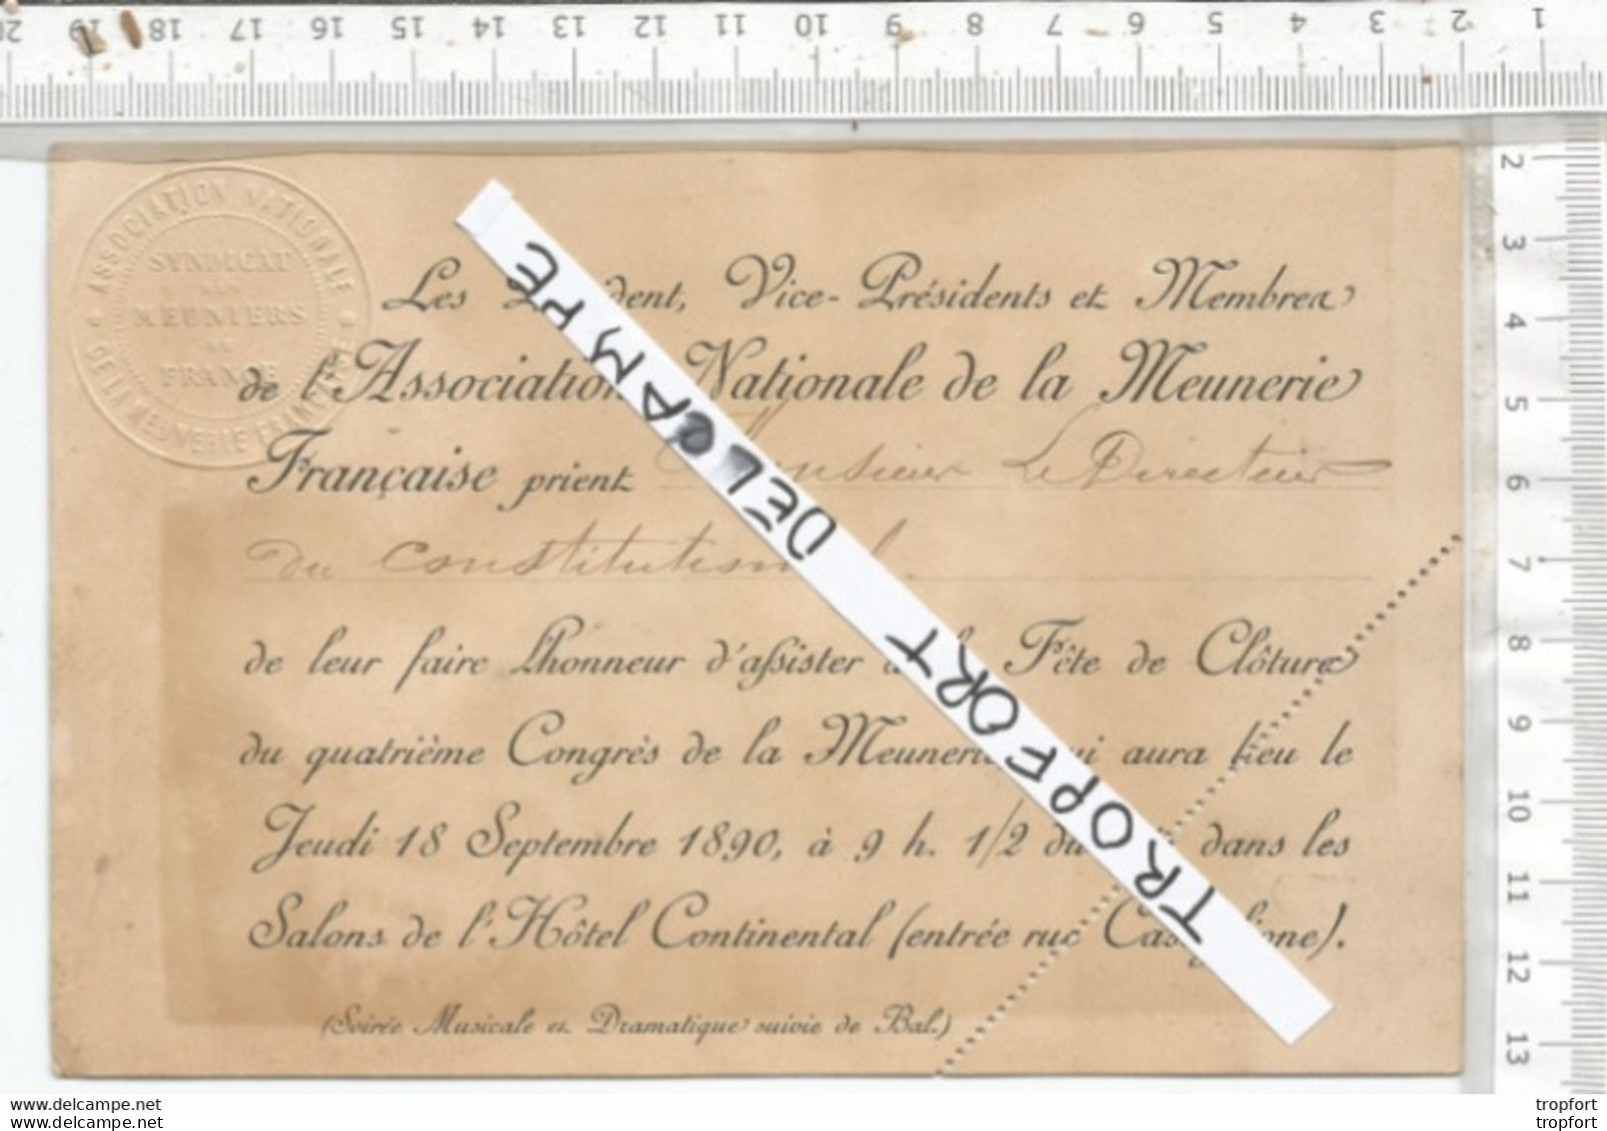 20 19 18 17 16 15 14 13 12 11 10 9 8 7 6 5 4 3 2 1
2
3
4
5
6
7
8
9
10
11
12
13
ASSOCIATION NATIONALE
DE LA MEUNERIE FRANÇAISE
SYNDICAT
DES
MEUNIERS
DE
FRANCE
Les dent, Vice-Présidents et Membres
de l'Association Nationale de la Meunerie
Française prient Monsieur Le Directeur
du Constitutionnel
de leur faire l'honneur d'assister à la Fête de Clôture
du quatrième Congrès de la Meunerie qui aura lieu le
Jeudi 18 Septembre 1890, à 9 h. 1/2 du dans les
Salons de l'Hôtel Continental (entrée rue Castiglione).
(Soirée Musicale et Dramatique suivie de Bal.)
TROPFORT DELCAMPE
www.delcampe.net
www.delcampe.net
tropfort
tropfort